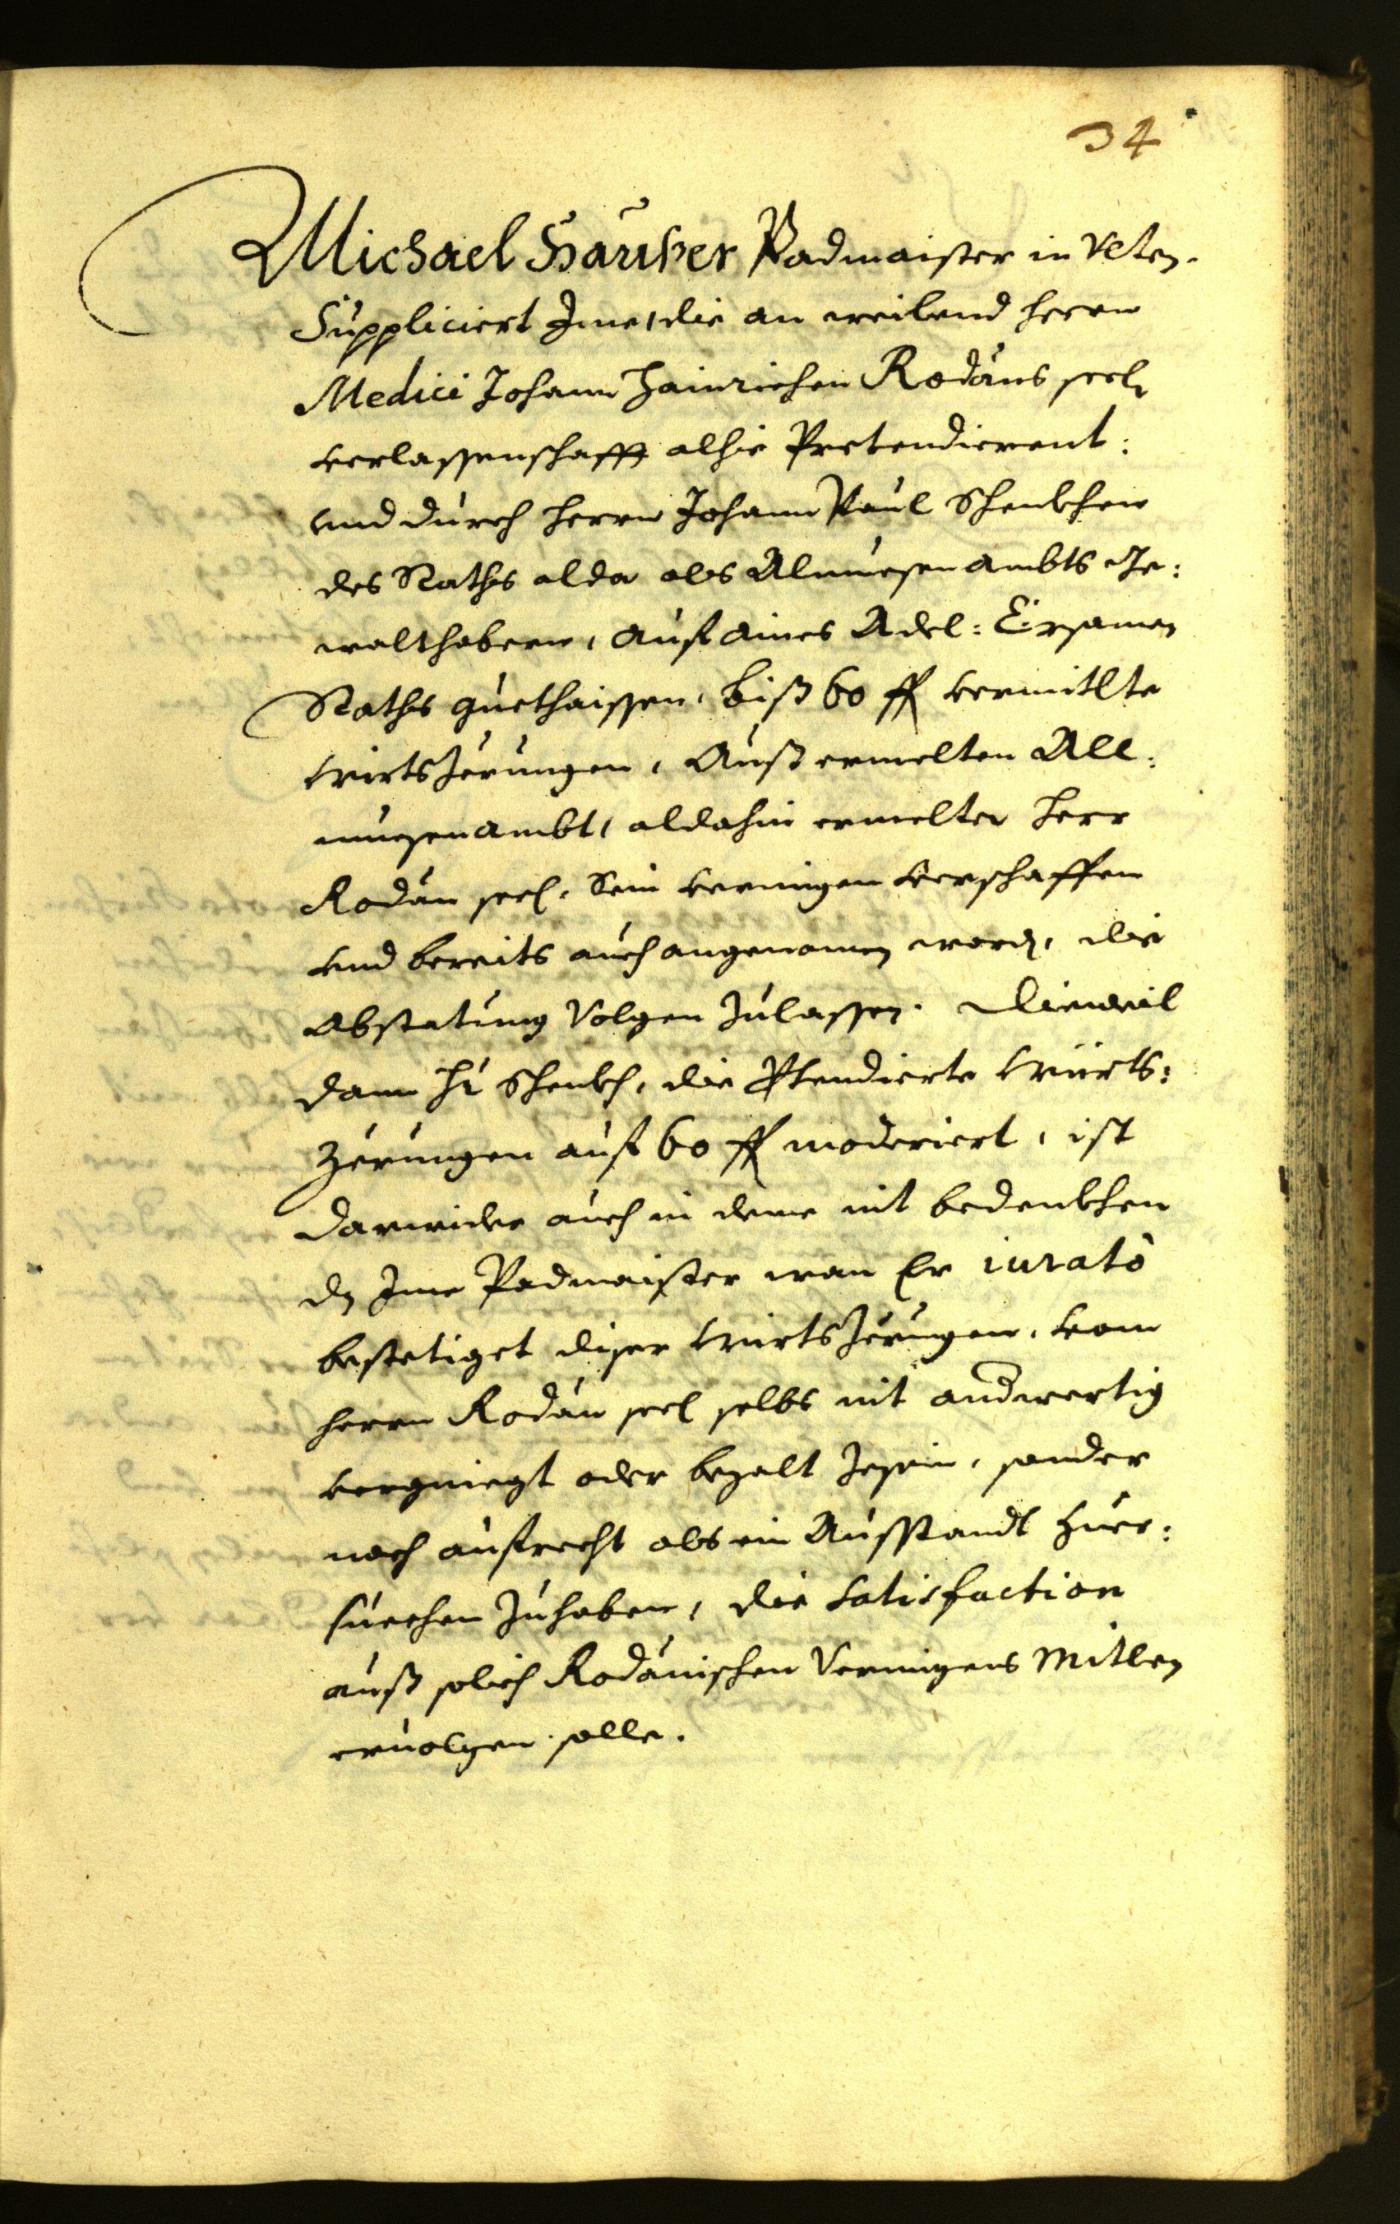 34
Michael Hauser Padmaister in Ulten.
Suppliciert Ime, die an weilend herrn
Medici Johann Hainrichen Rodäns seel
verlassenschafft alhie Pretendierent:
vnd durch herrn Johann Paul Schenkhen
des Raths alda als Almuesen Ambts Ge:
walthabern, auf aines Adel: Ersamen
Raths guethaissen, biß 60 ff vermitlte
Wirtszörungen, Auß ermelten All:
muesenambt, aldahin ermelter herr
Rodän seel. Sein vermigen verschaffen
vnd bereits auch angenomen word, die
Abstatung Volgen Zulassen. Dieweil
dann Hr Schenkh, die Ptendierte Wüirts:
Zörungen auf 60 ff moderiert, ist
darwider auch in deme nit bedenkhen
dz Ime Padmaister wan Er iurato
bestetiget diser Wirtszörungen, vom
herrn Rodän seel selbs nit anderwertig
vergniegt oder bezalt Zesein, sonder
noch aufrecht als ein Ausstandt Zuer:
suechen Zuhaben, die Satisfaction
auß solich Rodänischen Vermigens Mitlen
ervolgen solle.